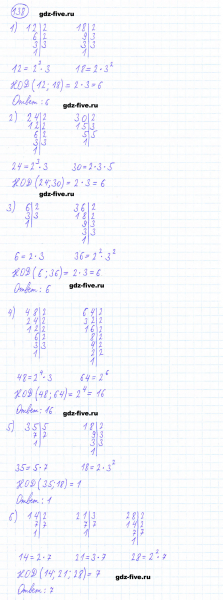 138 gdz-five.ru
1) 12|2 18|2
6|2 9|3
3|3 3|3
1| 1|
12 = 2² · 3 18 = 2 · 3²
НОД (12; 18) = 2 · 3 = 6
Ответ: 6 gdz-five.ru
2) 24|2 30|2
12|2 15|3
6|2 5|5
3|3 1|
1|
24 = 2³ · 3 30 = 2 · 3 · 5
НОД (24; 30) = 2 · 3 = 6
gdz-five.ru
3) 6|2 36|2
3|3 18|2
1| 9|3
3|3
1|
6 = 2 · 3 36 = 2² · 3²
НОД (6; 36) = 2 · 3 = 6
Ответ: 6 gdz-five.ru
4) 48|2 64|2
24|2 32|2
12|2 16|2
6|2 8|2
3|3 4|2
1| 2|2
1|
48 = 2⁴ · 3 64 = 2⁶
НОД (48; 64) = 2⁴ = 16
Ответ: 16
gdz-five.ru
5) 35|5 18|2
7|7 9|3
1| 3|3
1|
35 = 5 · 7 18 = 2 · 3²
НОД (35; 18) = 1
Ответ: 1
gdz-five.ru
6) 14|2 21|3 28|2
7|7 7|7 14|2
1| 1| 7|7
1|
14 = 2 · 7 21 = 3 · 7 28 = 2² · 7
НОД (14; 21; 28) = 7
Ответ: 7 gdz-five.ru